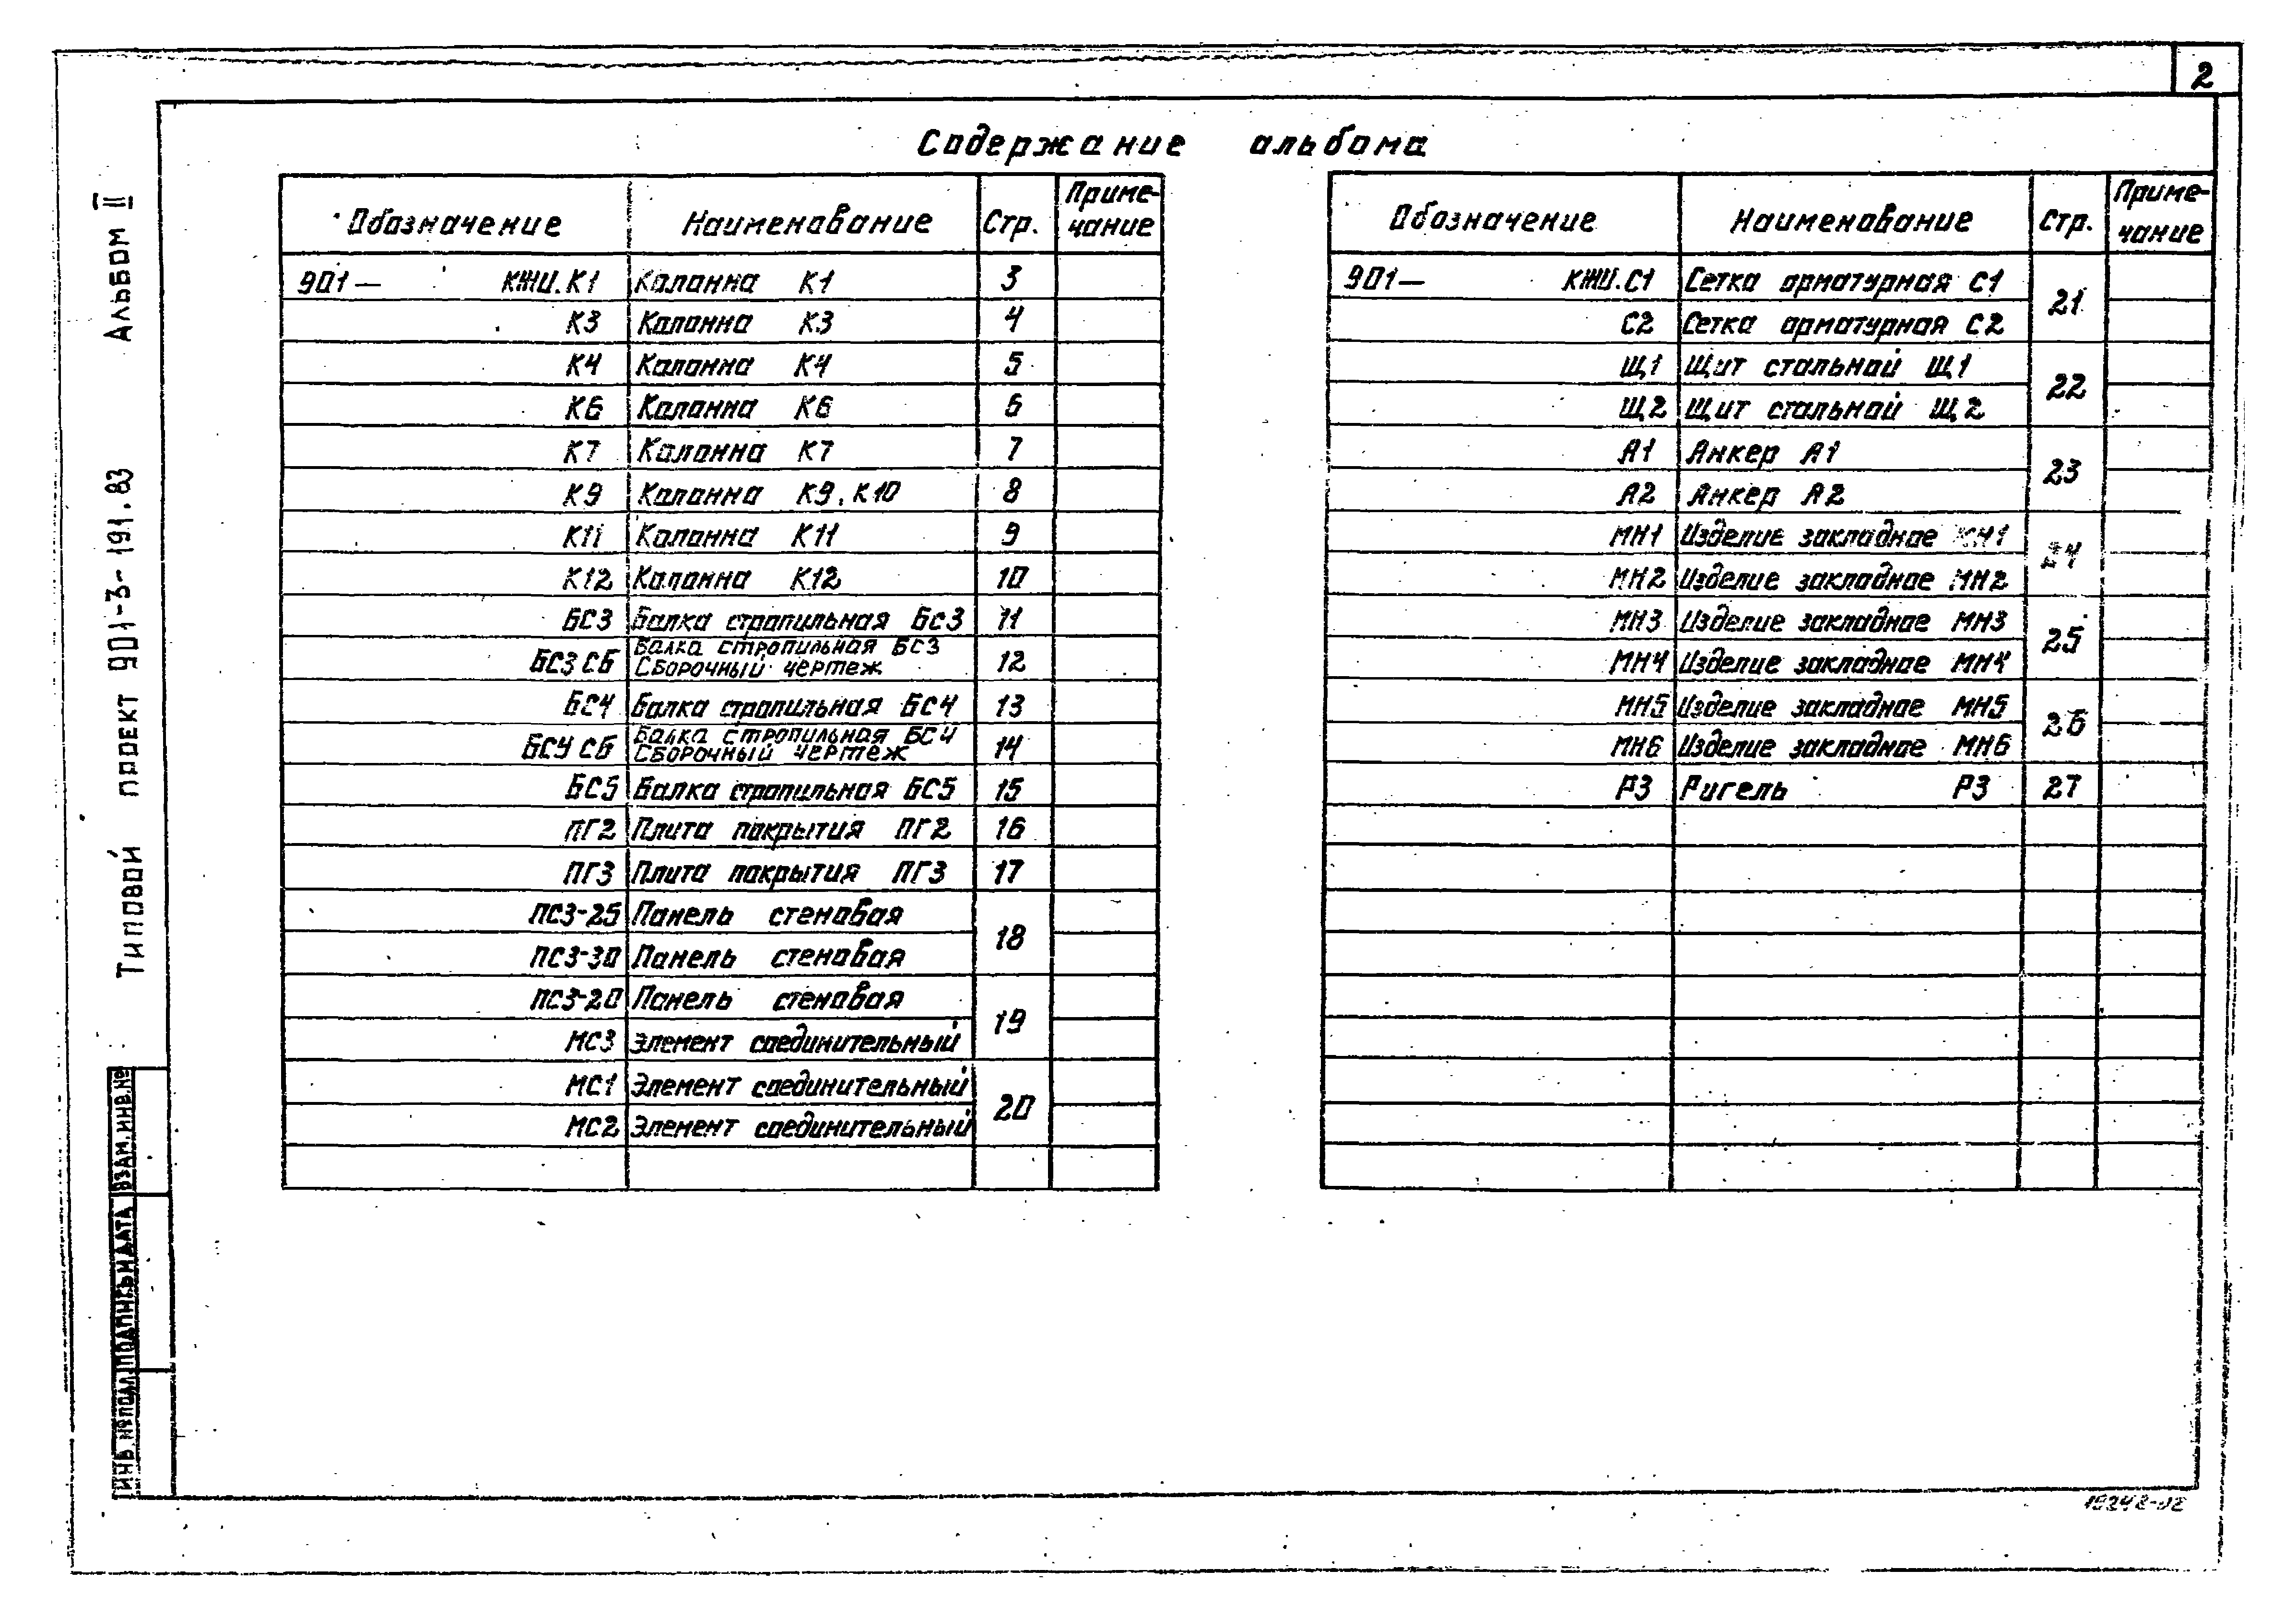 2
Содержание альбома
Обозначение Наименование Стр. Приме-
чание
901— КЖИ.К1 Колонна К1 3
К3 Колонна К3 4
К4 Колонна К4 5
К6 Колонна К6 6
К7 Колонна К7 7
К9 Колонна К9, К10 8
К11 Колонна К11 9
К12 Колонна К12 10
БС3 Балка стропильная БС3 11
БС3 СБ Балка стропильная БС3
Сборочный чертеж 12
БС4 Балка стропильная БС4 13
БС4 СБ Балка стропильная БС4
Сборочный чертеж 14
БС5 Балка стропильная БС5 15
ПГ2 Плита покрытия ПГ2 16
ПГ3 Плита покрытия ПГ3 17
ПС3-25 Панель стеновая 18
ПС3-30 Панель стеновая
ПС3-20 Панель стеновая 19
МС3 Элемент соединительный
МС1 Элемент соединительный 20
МС2 Элемент соединительный
Обозначение Наименование Стр. Приме-
чание
901— КЖИ.С1 Сетка арматурная С1 21
С2 Сетка арматурная С2
Щ1 Щит стальной Щ1 22
Щ2 Щит стальной Щ2
А1 Анкер А1 23
А2 Анкер А2
МН1 Изделие закладное МН1 24
МН2 Изделие закладное МН2
МН3 Изделие закладное МН3 25
МН4 Изделие закладное МН4
МН5 Изделие закладное МН5 26
МН6 Изделие закладное МН6
Р3 Ригель Р3 27
Типовой проект 901-3-191.83 Альбом II
ИНВ.№ПОДЛ. ПОДПИСЬ И ДАТА ВЗАМ.ИНВ.№